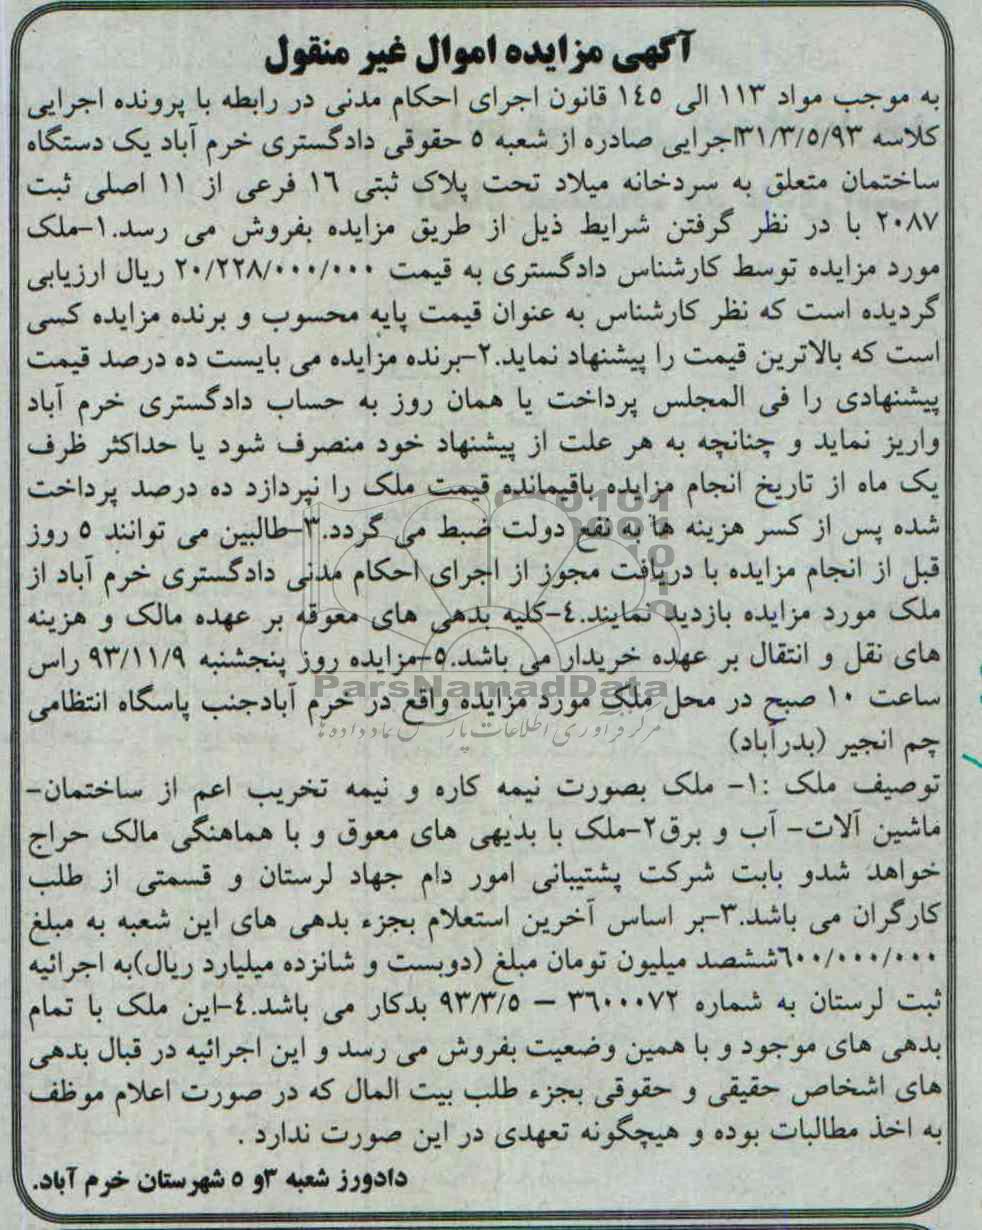 آگهی مزایده اموال غیر منقول
به موجب مواد ۱۱۳ الی ۱٤٥ قانون اجرای احکام مدنی در رابطه با پرونده اجرایی
کلاسه ۳۱/۳/٥/۹۳اجرایی صادره از شعبه ٥ حقوقی دادگستری خرم آباد یک دستگاه
ساختمان متعلق به سردخانه میلاد تحت پلاک ثبتی ۱٦ فرعی از ۱۱ اصلی ثبت
۲۰۸۷ با در نظر گرفتن شرایط ذیل از طریق مزایده بفروش می رسد.۱-ملک
مورد مزایده توسط کارشناس دادگستری به قیمت ۲۰/۲۲۸/۰۰۰/۰۰۰ ریال ارزیابی
گردیده است که نظر کارشناس به عنوان قیمت پایه محسوب و برنده مزایده کسی
است که بالاترین قیمت را پیشنهاد نماید.۲-برنده مزایده می بایست ده درصد قیمت
پیشنهادی را فی المجلس پرداخت یا همان روز به حساب دادگستری خرم آباد
واریز نماید و چنانچه به هر علت از پیشنهاد خود منصرف شود یا حداکثر ظرف
یک ماه از تاریخ انجام مزایده باقیمانده قیمت ملک را نپردازد ده درصد پرداخت
شده پس از کسر هزینه ها به نفع دولت ضبط می گردد.۳-طالبین می توانند ٥ روز
قبل از انجام مزایده با دریافت مجوز از اجرای احکام مدنی دادگستری خرم آباد از
ملک مورد مزایده بازدید نمایند.٤-کلیه بدهی های معوقه بر عهده مالک و هزینه
های نقل و انتقال بر عهده خریدار می باشد.٥-مزایده روز پنجشنبه ۹۳/۱۱/۹ راس
ParsNamadData
ساعت ۱۰ صبح در محل ملک مورد مزایده واقع در خرم آبادجنب پاسگاه انتظامی
مرکز فرآوری اطلاعات پارس نماد داده ها
چم انجیر (بدرآباد)
توصیف ملک :۱- ملک بصورت نیمه کاره و نیمه تخریب اعم از ساختمان-
ماشین آلات- آب و برق۲-ملک با بدیهی های معوق و با هماهنگی مالک حراج
خواهد شدو بابت شرکت پشتیبانی امور دام جهاد لرستان و قسمتی از طلب
کارگران می باشد.۳-بر اساس آخرین استعلام بجزء بدهی های این شعبه به مبلغ
٦۰۰/۰۰۰/۰۰۰ششصد میلیون تومان مبلغ (دوبست و شانزده میلیارد ریال)به اجرائیه
ثبت لرستان به شماره ۳٦۰۰۰۷۲ – ۹۳/۳/٥ بدکار می باشد.٤-این ملک با تمام
بدهی های موجود و با همین وضعیت بفروش می رسد و این اجرائیه در قبال بدهی
های اشخاص حقیقی و حقوقی بجزء طلب بیت المال که در صورت اعلام موظف
به اخذ مطالبات بوده و هیچگونه تعهدی در این صورت ندارد .
دادورز شعبه ۳و ۵ شهرستان خرم آباد.